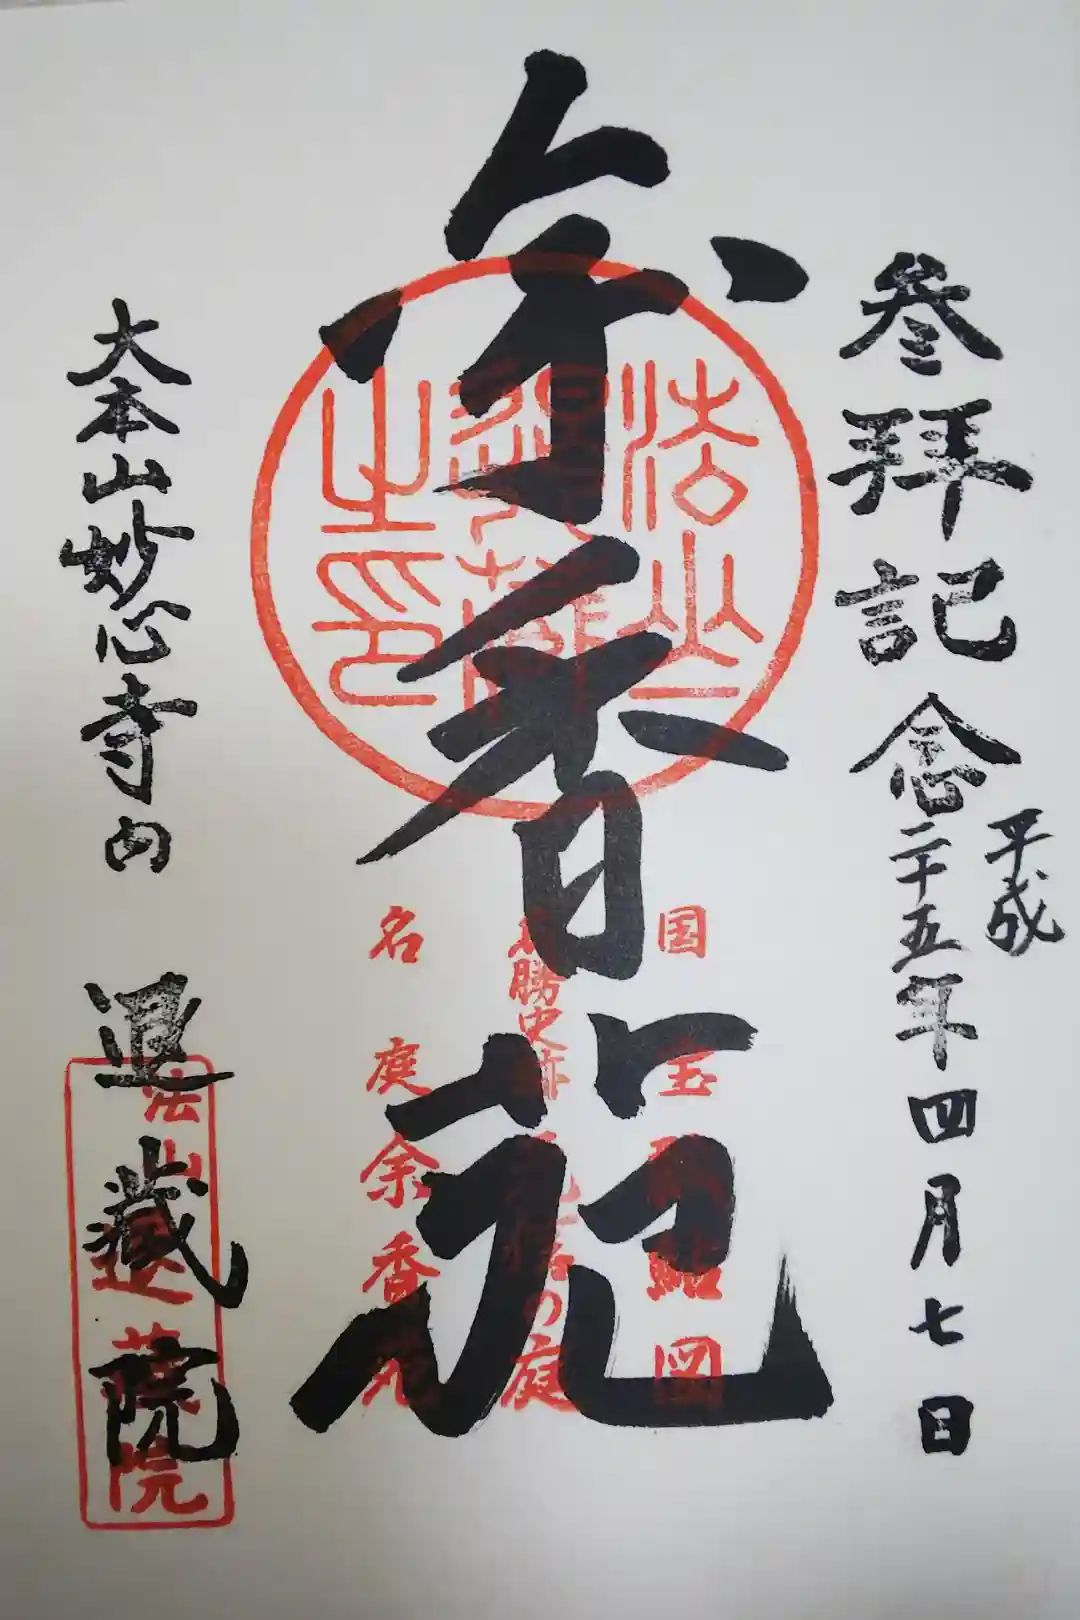 参拝記念
平成
二十五年四月七日
余香苑
法山
退蔵院
之印
国宝瓢鮎図
名勝史跡元信の庭
名庭余香苑
大本山妙心寺内 退蔵院
法山
退蔵院